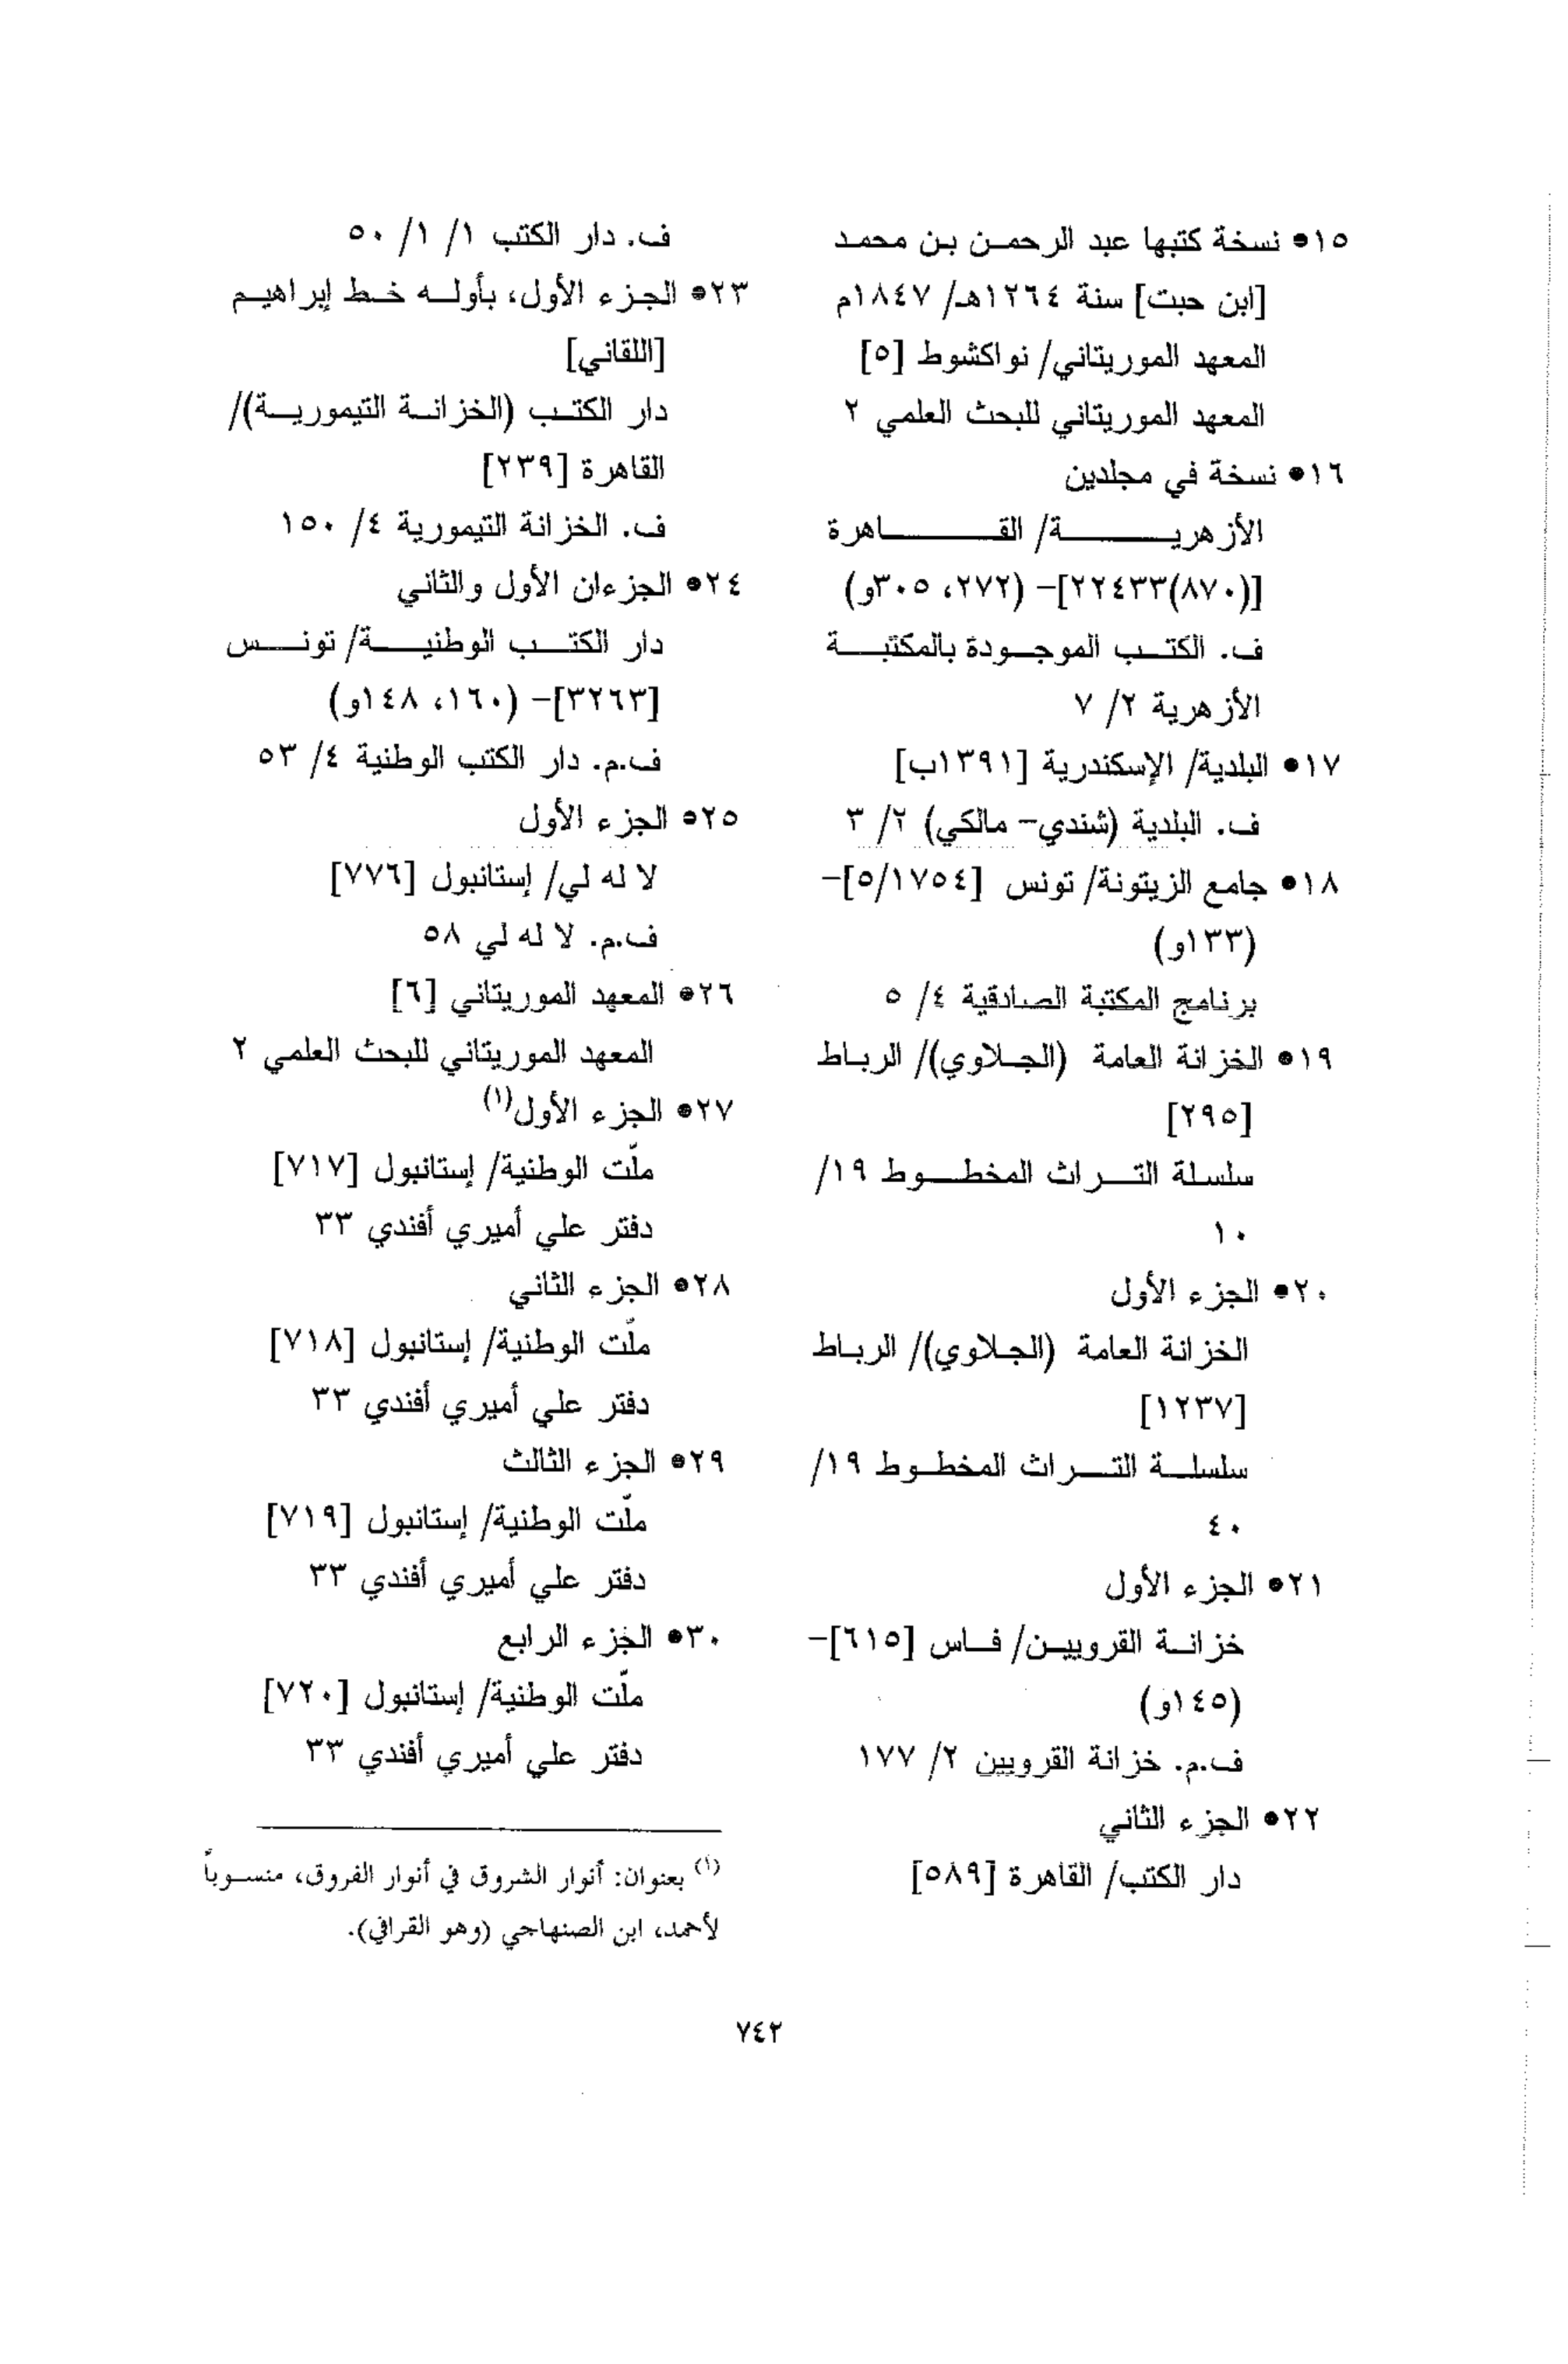 ١٥• نسخة كتبها عبد الرحمن بن محمد
[ابن حبت] سنة ١٢٦٤هـ/ ١٨٤٧م
المعهد الموريتاني/ نواكشوط [٥]
المعهد الموريتاني للبحث العلمي ٢
١٦• نسخة في مجلدين
الأزهرية/ القاهرة
[(٨٧٠)٢٢٤٣٣]- (٢٧٢، ٣٠٥و)
ف. الكتب الموجودة بالمكتبة
الأزهرية ٢/ ٧
١٧• البلدية/ الإسكندرية [١٣٩١ب]
ف. البلدية (شندي- مالكي) ٢/ ٣
١٨• جامع الزيتونة/ تونس [٥/١٧٥٤]-
(١٣٣و)
برنامج المكتبة الصادقية ٤/ ٥
١٩• الخزانة العامة (الجلاوي)/ الرباط
[٢٩٥]
سلسلة التراث المخطوط ١٩/
١٠
٢٠• الجزء الأول
الخزانة العامة (الجلاوي)/ الرباط
[١٢٣٧]
سلسلة التراث المخطوط ١٩/
٤٠
٢١• الجزء الأول
خزانة القرويين/ فاس [٦١٥]-
(١٤٥و)
ف.م. خزانة القرويين ٢/ ١٧٧
٢٢• الجزء الثاني
دار الكتب/ القاهرة [٥٨٩]
ف. دار الكتب ١/ ١/ ٥٠
٢٣• الجزء الأول، بأوله خط إبراهيم
[اللقاني]
دار الكتب (الخزانة التيمورية)/
القاهرة [٢٣٩]
ف. الخزانة التيمورية ٤/ ١٥٠
٢٤• الجزءان الأول والثاني
دار الكتب الوطنية/ تونس
[٣٢٦٣]- (١٦٠، ١٤٨و)
ف.م. دار الكتب الوطنية ٤/ ٥٣
٢٥• الجزء الأول
لا له لي/ إستانبول [٧٧٦]
ف.م. لا له لي ٥٨
٢٦• المعهد الموريتاني [٦]
المعهد الموريتاني للبحث العلمي ٢
٢٧• الجزء الأول(١)
ملّت الوطنية/ إستانبول [٧١٧]
دفتر علي أميري أفندي ٣٣
٢٨• الجزء الثاني
ملّت الوطنية/ إستانبول [٧١٨]
دفتر علي أميري أفندي ٣٣
٢٩• الجزء الثالث
ملّت الوطنية/ إستانبول [٧١٩]
دفتر علي أميري أفندي ٣٣
٣٠• الجزء الرابع
ملّت الوطنية/ إستانبول [٧٢٠]
دفتر علي أميري أفندي ٣٣
(١) بعنوان: أنوار الشروق في أنوار الفروق، منسوباً
لأحمد، ابن الصنهاجي (وهو القرافي).
٧٤٢